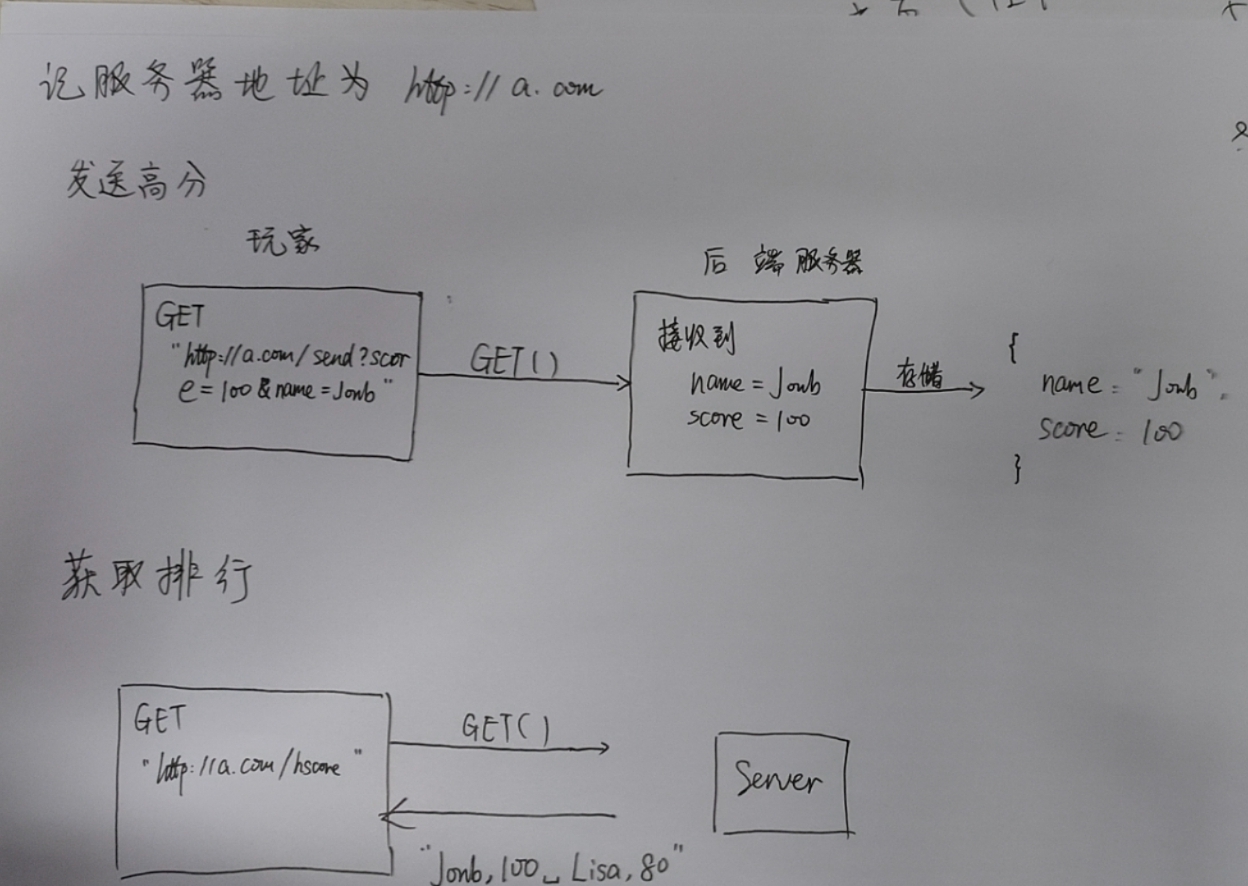 记服务器地址为 http://a.com
发送高分
玩家
后端服务器
GET
"http://a.com/send?scor
e=100&name=Jonb"
GET()
接收到
name=Jonb
score=100
存储
{
name: "Jonb",
score: 100
}
获取排行
GET
"http://a.com/hscore"
GET()
Server
"Jonb,100␣Lisa,80"